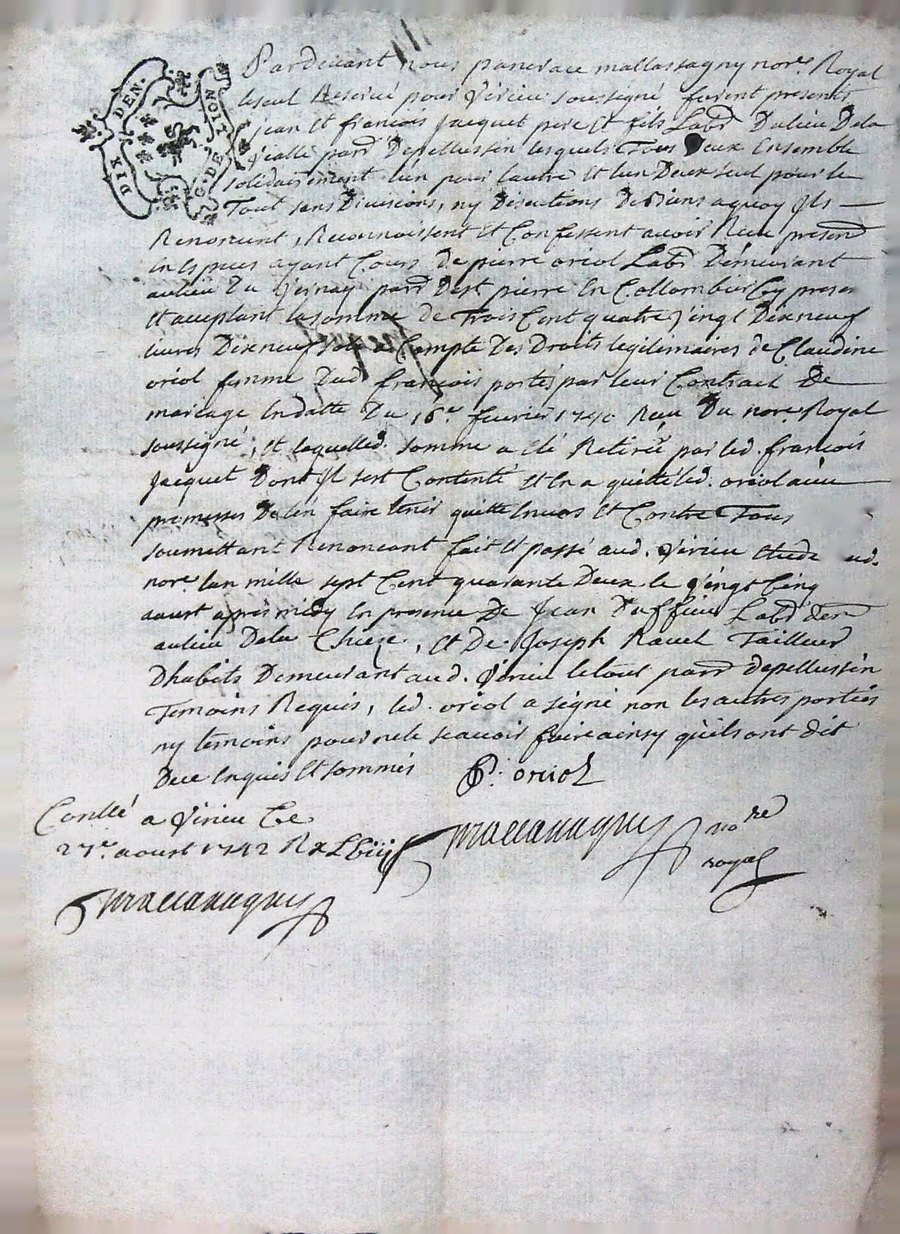 DIX DEN.
G. DE
NOIT
Pardevant nous pancrace mallassagny nore. Royal
Reservé pour Virieu soussigné furent presents
jean Et francois Jacquet pere Et fils Labrs Dulieu Dela
Vialle parr Depellussin lesquels Tous Deux Ensemble
solidairement lun pour lautre Et lun Deux seul pour le
Tout sans Divisions, ny Discutions De Biens aquoy Ils
Renoncent, Reconnoissent Et Confessent avoir Receu presend
En Especes ayant Cours de pierre oriol Labr Demeurant
aulieu Du Vernay parr De st pierre En Collombier Cy presen
Et acceptant la somme de Trois Cent quatre Vingt Dix neuf
livres Dix neuf sols a Compte Des Droits legitimaires de Claudine
oriol femme Dud. francois portés par leur Contrait De
mariage En datte Du 16er fevrier 1740 Receu Du nore. Royal
soussigné, Et laquelled. somme a Eté Retirée par led. francois
Jacquet Dont Il sest Contenté Et En a quitté led. oriol avec
promesses De len faire tenir quitte Envers Et Contre Tous
soumettant Renoncant fait Et passé aud. Virieu Etude ud.
nore lan mille sept Cent quarante Deux le Vingt Cinq
aoust apres midy En presence De Jean Duffieu Labr Dem
aulieu Dela Chieze, Et De Joseph Ravel Tailleur
Dhabits Demeurant aud. Virieu le tout parr depellussin
Temoins Requis, led. oriol a signé non les autres parties
ny temoins pour ne le scavoir faire ainsy quils ont dit
Dece Enquis Et sommés P. oriol
Conllé a Virieu Ce
27e. aoust 1742 Rx
nore
royal